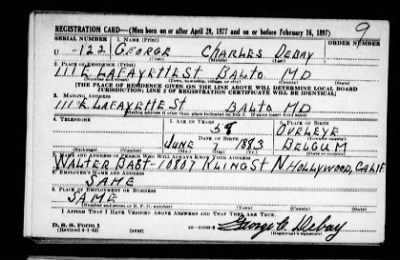 REGISTRATION CARD—(Men born on or after April 28, 1877 and on or before February 16, 1897)
SERIAL NUMBER 1. NAME (Print) ORDER NUMBER
U -122 GEORGE CHARLES DEBAY 9
(First) (Middle) (Last)
2. PLACE OF RESIDENCE (Print)
111 E LAFAYETTE ST BALTO MD
(Number and street) (Town, township, village, or city) (County) (State)
[THE PLACE OF RESIDENCE GIVEN ON THE LINE ABOVE WILL DETERMINE LOCAL BOARD
JURISDICTION; LINE 2 OF REGISTRATION CERTIFICATE WILL BE IDENTICAL]
3. MAILING ADDRESS
111 E LAFAYETTE ST BALTO MD
[Mailing address if other than place indicated on line 2. If same insert word same]
4. TELEPHONE 5. AGE IN YEARS 6. PLACE OF BIRTH
58
DATE OF BIRTH
JUNE 7 1883 BELGUM
(Exchange) (Number) (Mo.) (Day) (Yr.) (State or country)
7. NAME AND ADDRESS OF PERSON WHO WILL ALWAYS KNOW YOUR ADDRESS
WALTER BAST-10887 KLING ST N HOLLYWOOD, CALIF
8. EMPLOYER'S NAME AND ADDRESS
SAME
9. PLACE OF EMPLOYMENT OR BUSINESS
SAME
(Number and street or R. F. D. number) (Town) (County) (State)
I AFFIRM THAT I HAVE VERIFIED ABOVE ANSWERS AND THAT THEY ARE TRUE.
D. S. S. Form 1
(Revised 4-1-42) George C. Debay
(Registrant's signature)